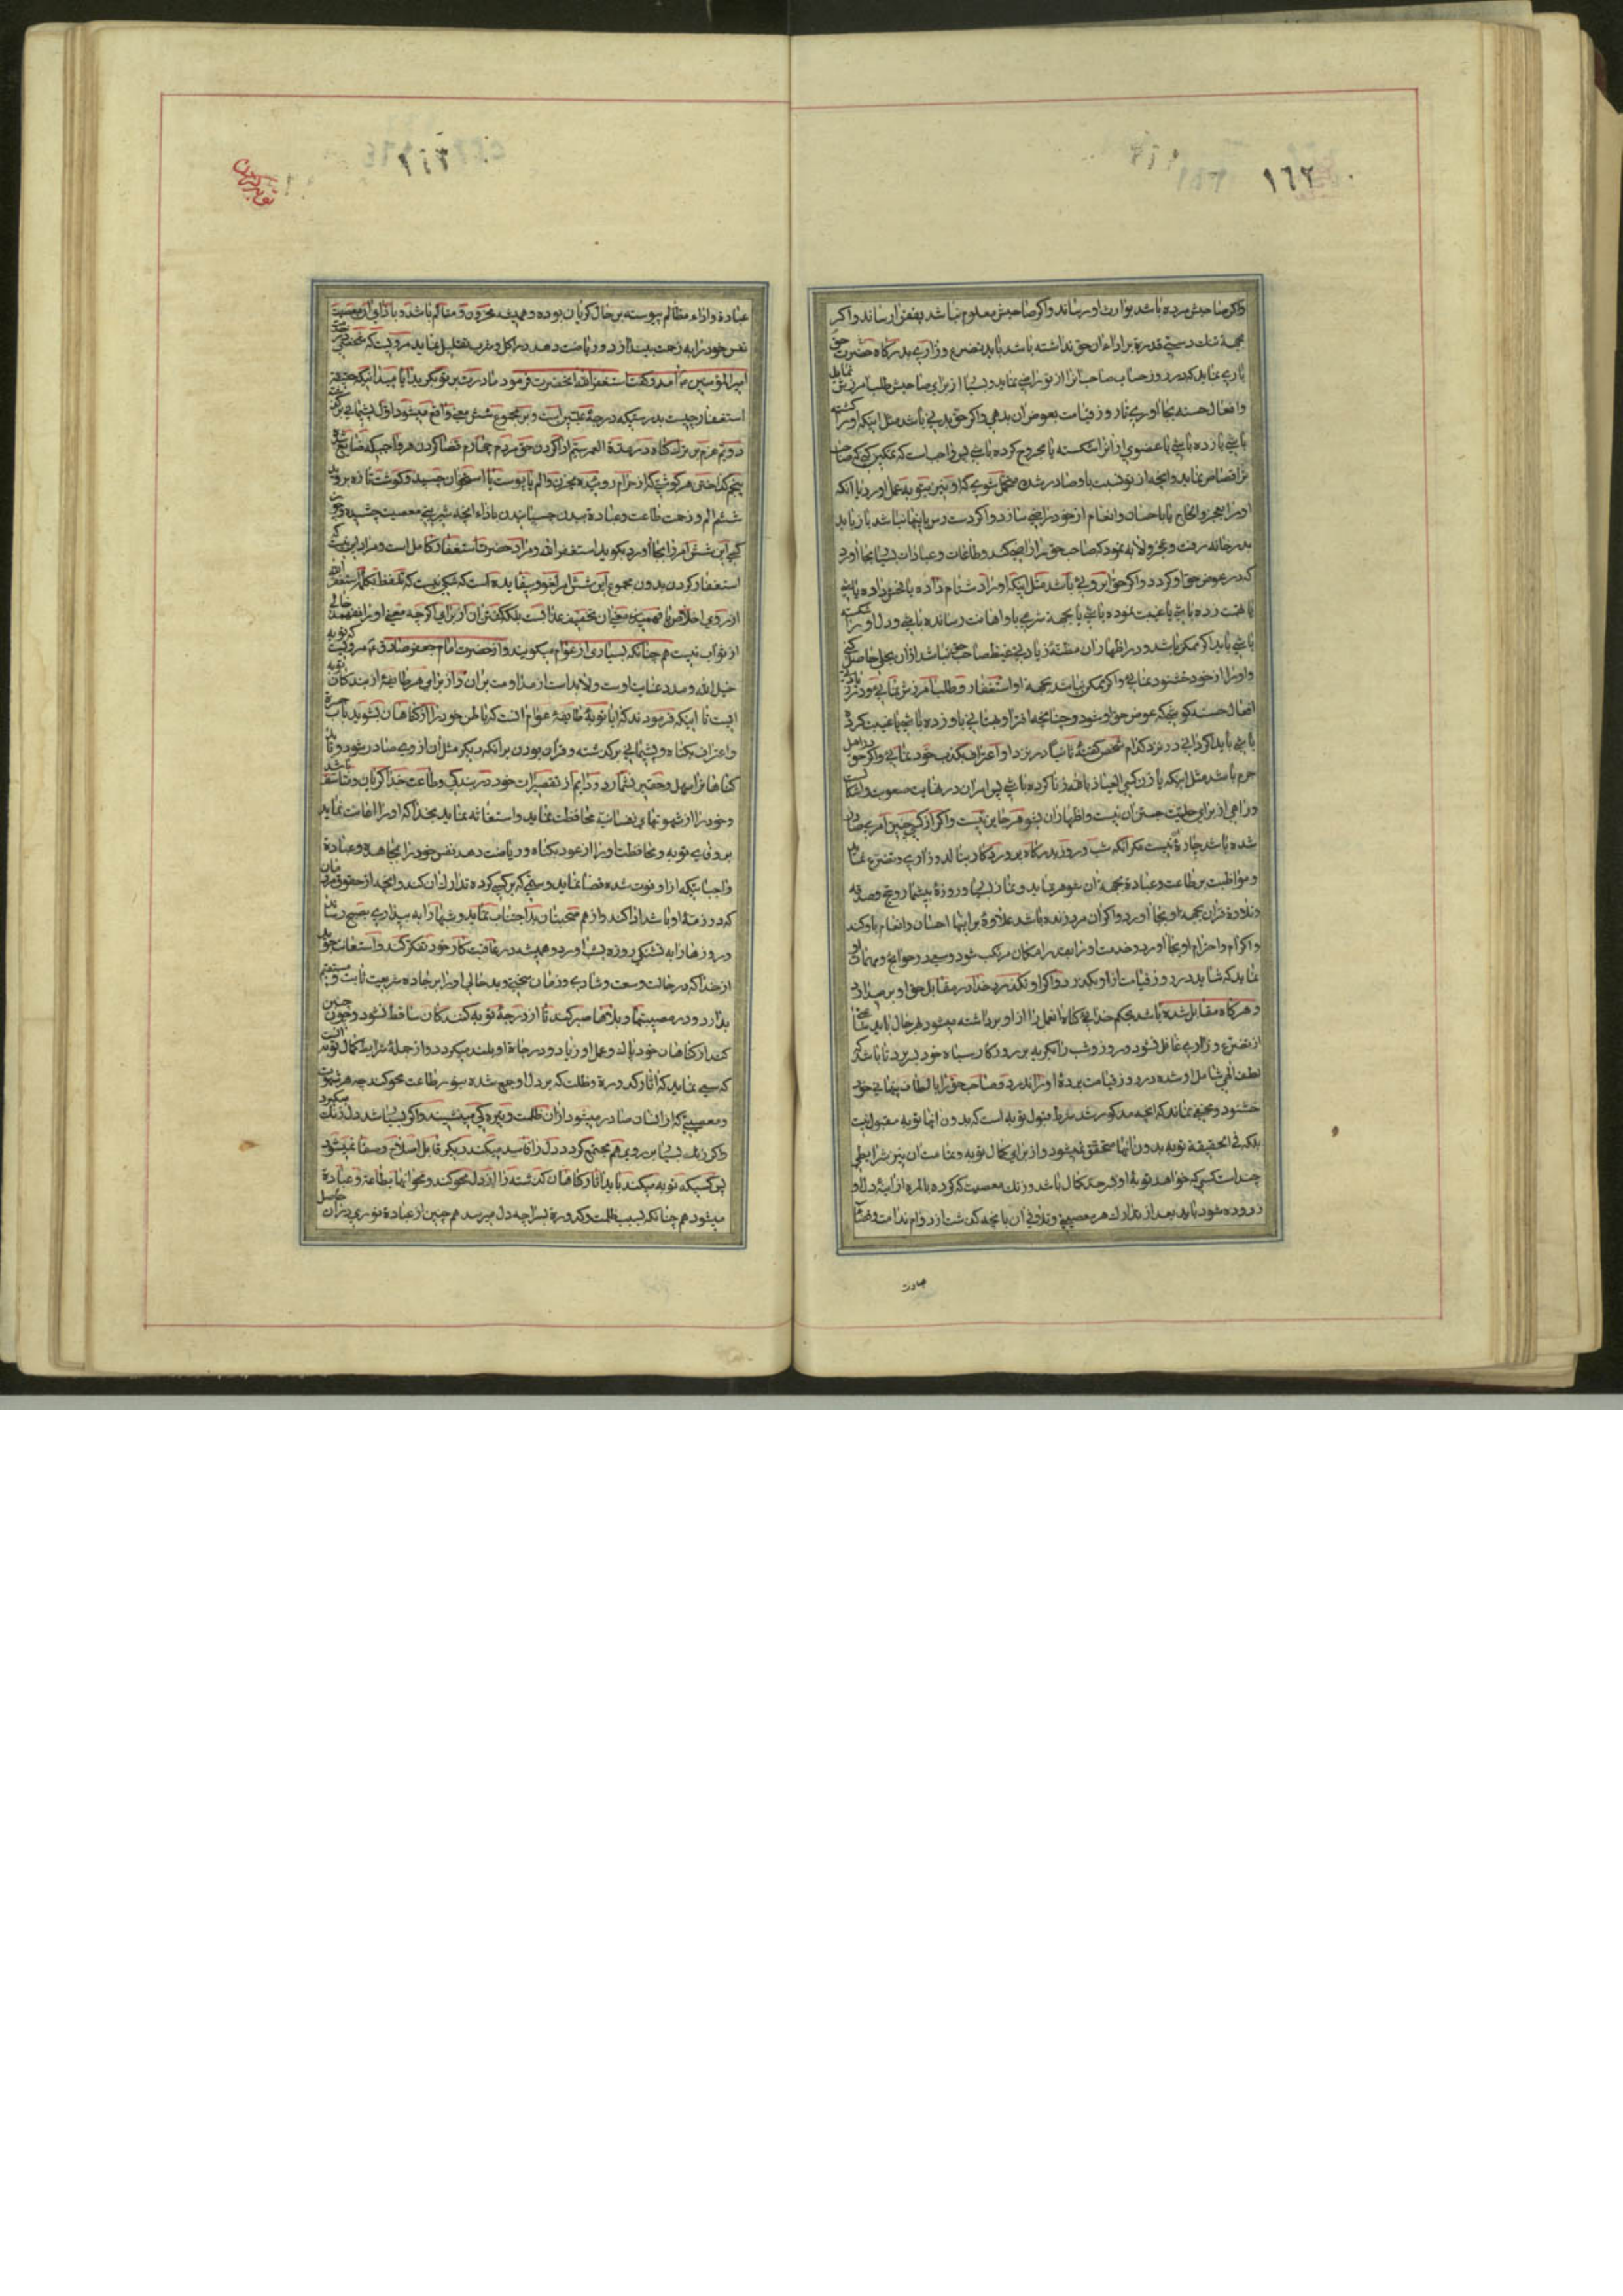 ١٦٢
واکر صاحبش مرده باشد بوارث او رساند واکر صاحبش معلوم نباشد بفقرا رساند واکر
بجهة تنك دستی قدرة بر اداء ان حق نداشته باشد باید تضرع وزاری بدرکاه حضرت حق
باری نماید که در روز حساب صاحبانرا از تو راضی نماید وبسیا از برای صاحبش طلب امرزش نماید
وافعال حسنه بجا اوری تا روز قیامت بعوض ان بدهی واکر حق بدنی باشد مثل اینکه او را کشته
باشی یا زده باشی یا عضوی از انرا شکسته یا مجروح کرده باشی پس واجب است که تمکین کنی که صاحب
او را بعجز والحاح یا باحسان وانعام از خود راضی سازد واکر دست رس باینها نباشد باز باید
بدر خانه رفت وعجز ولابه نمود که صاحب حق را راضی کند وطاعات وعبادات بسیا بجا اورد
که در عوض حق او کردد واکر حق ابرویی باشد مثل اینکه او را دشنام داده یا فحش داده باشی
یا تهمت زده باشی یا غیبت نموده باشی یا بجهة شرعی باو اهانت رسانده باشی ودل او را شکسته
باشی باید اکر ممکن باشد ودر اظهار ان مظنهٔ زیادتی غیظ صاحب حق نباشد از ان بحلی حاصل کنی
واو را از خود خشنود نمائی واکر ممکن نباشد بجهة او استغفار وطلب امرزش نمائی
افعال حسنه کوشی که عوض حق او شود وچنانچه افترا وبهتانی باو زده باشی یا غیبت کرده
باشی باید اکر دانی در نزد کدام شخص کفتهٔ در نزد او اعتراف بکذب خود نمائی واکر حق
حرم باشد مثل اینکه با زن کسی العیاذ بالله زنا کرده باشی پس امر ان در نهایت صعوبت
وراهی از برای حلیت جستن ان نیست واظهار ان بشوهر جایز نیست واکر از کسی چنین امری صادر
شده باشد چارهٔ نیست مکر انکه شب وروز بدرکاه پروردکار بنالد وزاری وتضرع نماید
ومواظبت بر طاعت وعبادة بجهة ان شوهر نماید ونماز بسیار وروزهٔ بیشمار وحج وصدقه
وتلاوة قران بجهة او بجا اورد واکر ان مرد زنده باشد علاوهٔ بر اینها احسان وانعام باو کند
واکرام واحترام او بجا اورد وخدمت او را بقدر امکان مرتکب شود وسعی در حوایج ومهمات او
نماید که شاید در روز قیامت از او بکذرد واکر او نکذرد خدا در مقابل حق او
وهرکاه مقابل شده باشد بحکم خدائی کناه انعمل را از او برداشته میشود بهر حال باید
از تضرع وزاری غافل نشود وروز وشب را بکریه بر روزکار سیاه خود بسر برد تا باشد که
لطف الهی شامل او شده در روز قیامت پردهٔ او را ندرد وصاحب حق را بالطاف پنهانی خود
خشنود ومخفی نماند که انچه مذکور شد شرط قبول توبه است که بدون انها توبه مقبول نیست
بلکه فی الحقیقه توبه بدون انها متحقق نمیشود واز برای کمال توبه وتمامت ان نیز شرایطی
چند است کسی که خواهد توبهٔ او بسرحد کمال باشد وزنك معصیت که کرده بالمره از اینهٔ دل او
زدوده شود باید بعد از تدارك هر معصیتی وتلافی ان بانچه کذشت از دوام ندامت وقضا
عبادت
١٦٣
عبادة واداء مظالم پیوسته بر حال کریان بوده وهمیشه محزون ومتالم باشد وباذای ان معصیت
نفس خود را به زحمت بیندازد وریاضت دهد در اکل وشرب تقلیل نماید مرویست که شخصی
امیرالمؤمنین ع امد وکفت استغفر الله انحضرت فرمود مادرت بر تو بکرید ایا میدانی که حقیقة
استغفار چیست بدرستیکه درجهٔ علیین است وبر مجموع شش معنی واقع میشود اول پشیمانی بر کذشته
دویم عزم بر ترك کناه در بقیهٔ العمر سیم ادا کردن حق مردم چهارم قضا کردن هر واجبی که ضایع شده
پنجم کداختن هر کوشتی که از حرام روئیده بحزن والم تا پوست باستخوان چسبد وکوشت تازه بروید
ششم الم وزحمت طاعت وعبادة ببدن چسانیدن باذاء انچه شیرینی معصیت چشیده وچون
کسی این شش امر را بجا اورد بکوید استغفر الله ومراد حضرت استغفار کامل است ومراد این نیست که
استغفار کردن بدون مجموع این شش امر لغو وبیفایده است که شکی نیست که تلفظ بکلمهٔ استغفر الله
از روی اخلاص با فهمیدن معنی ان تخفیف عذاب است بلکه کفتن ان از برای اکرچه معنی او را نفهمد خالی
از ثواب نیست همچنانکه بسیاری از عوام میکویند واز حضرت امام جعفر صادق ع مرویست که توبه
حبل الله ومدد عنایت اوست ولابد است از مداومت بر ان واز برای هر طایفهٔ از بندکان توبه
ایست تا اینکه فرمودند که اما توبهٔ طایفهٔ عوام انست که باطن خود را از کناهان بشوید باب حسرة
واعتراف بکناه وپشیمانی بر کذشته وترسان بودن بر انکه دیکر مثل ان از وی صادر شود وباید
کناهانرا سهل وحقیر نشمارد ودایم از تقصیرات خود در بندکی وطاعت خدا کریان ومتاسف باشد
وخود را از شهوتهای نفسانیه محافظت نماید واستغاثه نماید بخدا که او را اعانت نماید
بر وفای توبه ومحافظت او را از عود بکناه وریاضت دهد نفس خود را بمجاهده وعبادة
واجباتیکه از او فوت شده قضا نماید وستمی که بر کسی کرده تدارك ان کند وانچه از حقوق مردمان
که در ذمهٔ او باشد ادا کند واز هم صحبتان بد اجتناب نماید وشبها را به بیداری بصبح رساند
وروزها را به تشنکی روزه بشب اورد وهمیشه در عاقبت کار خود تفکر کند واستعانت جوید
از خدا که در حالت وسعت وشادی وزمان سختی وبد حالی او را بر جاده شریعت ثابت ومستقیم
بدارد ودر مصیبتها وبلاها صبر کند تا از درجهٔ توبه کنندکان ساقط نشود وچون چنین
کند از کناهان خود پاك وعمل او زیاد ودرجات او بلند میکردد واز جملهٔ شرایط کمال توبه انست
که سعی نماید که اثار کدورة وظلمت که بر دل او جمع شده بنور طاعت محو کند چه هر شهوت
ومعصیتی که از انسان صادر میشود از ان ظلمت وتیره کی مینشیند واکر بسیا شد دل زنك میکیرد
واکر زنك بسیا بر روی هم مجتمع کردد دل را فاسد میکند دیکر قابل اصلاح وصفا نمیشود
پس کسیکه توبه میکند باید اثار کناهان کذشته را از دل محو کند ومحو انها بطاعة وعبادة
میشود همچنانکه بسبب ظلمت وکدورة بسراچهٔ دل میرسد همچنین از عبادة نوری در ان حاصل